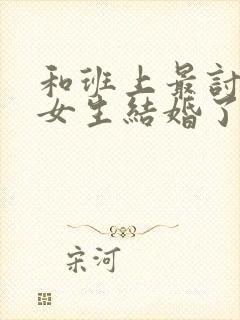 和班上最討
女生結婚了
宋河